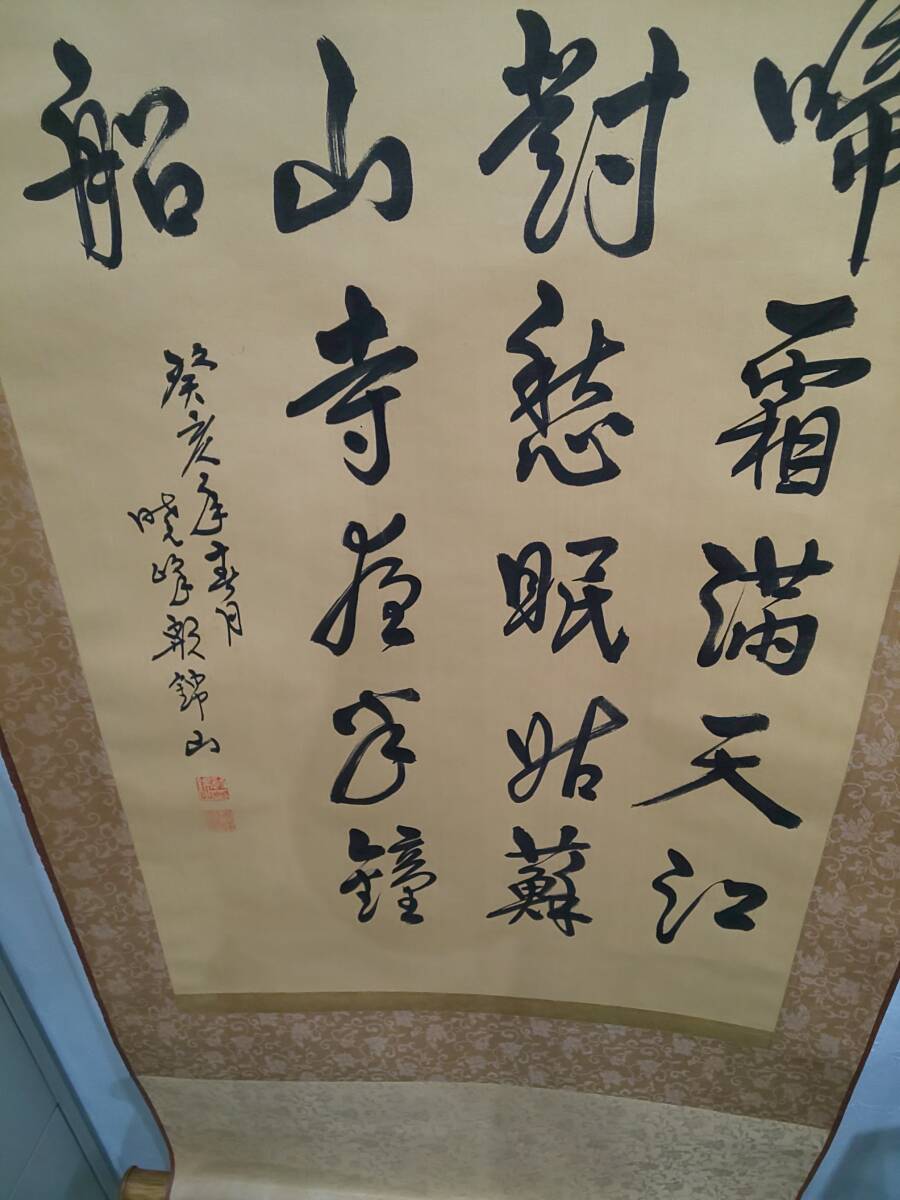 啼霜满天江
對愁眠姑蘇
山寺夜半鐘
船
癸亥年春月
曉峰
錦山